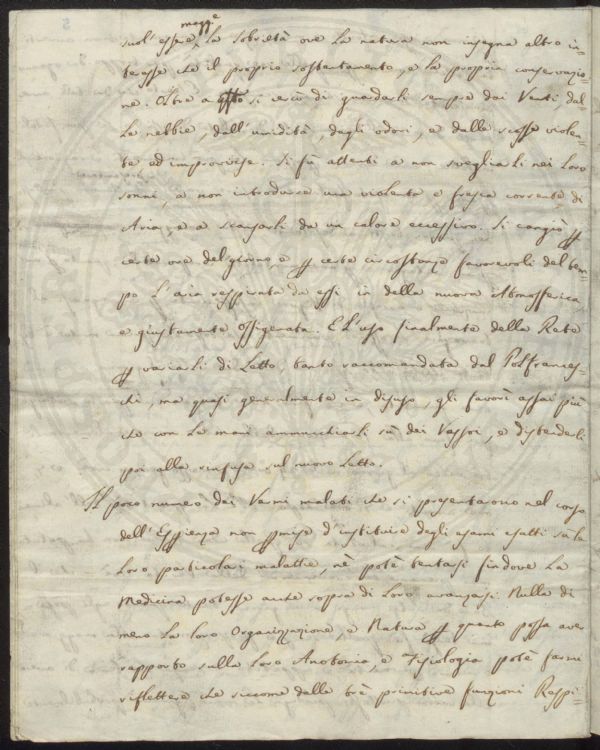 magg.e
suol' essere la sobrietà ove la natura non insegna altro in-
teresse che il proprio sostentamento, e la propria conservazio-
ne. Oltre a questo si cercò di guardarli sempre dai Venti, dal
la nebbie, dall' umidità, dagli odori, e dalle scosse violen-
te ed improvvise. Si fù attenti a non svegliarli nei loro
sonni, a non introdurre una violenta e fresca corrente di
Aria, e a scansarli da un calore eccessivo. Si cangiò per
certe ore del giorno, e per certe circostanze favorevoli del tem-
po l'aria respirata da essi in della nuova Atmosferica
e giustamente ossigenata. E l'uso finalmente della Rete
per variarli di Letto, tanto raccomandata dal Polfrances-
chi, ma quasi generalmente in disuso, gli favorì assai più
che con le mani ammucchiarli sù dei Vassoi, e distenderli
poi alla rinfusa sul nuovo Letto.
Il poco numeo dei Vermi malati che si presentarono nel corso
dell' Esperienza non permise d'instituire degli esami esatti sulla
loro particolari malattie, nè potè tentarsi fin dove la
Medicina potesse anche sopra di loro avanzarsi. Nulla di
meno la loro Organizzazione, e Natura per quanto possa aver
rapporto sulla loro Anotomia, e Fisiologia potè farmi
riflettere che siccome dalle trè primitive funzioni Respi-